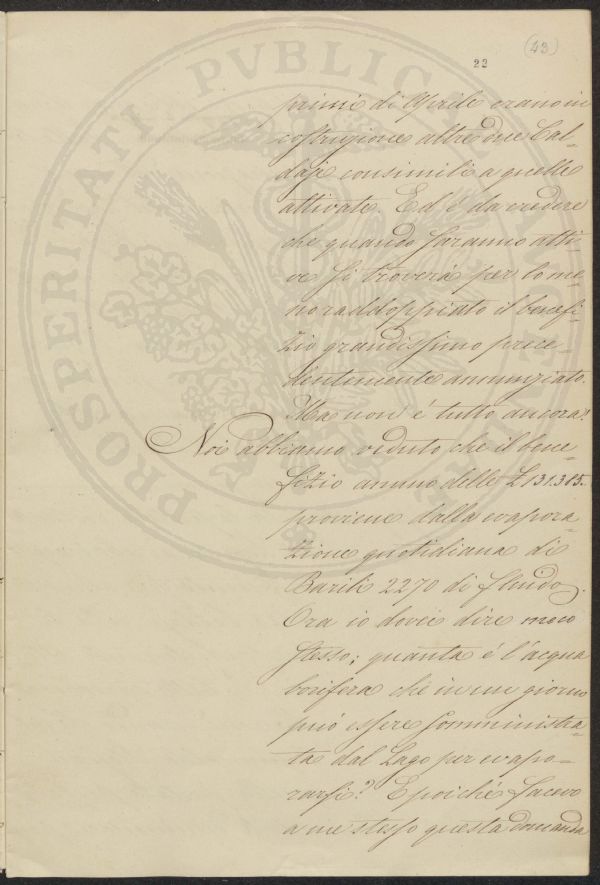 22
(43)
primi di Aprile erano in
costruzione altre due Cal-
daje consimili a quelle
attivate. Ed é da credere
che quando saranno atti-
ve si troverà per lo me-
no raddoppiato il benefi-
zio grandissimo prece-
dentemente annunziato.
Ma non é tutto ancora!
Noi abbiamo veduto che il bene-
fizio annuo delle £ 131.315.
proviene dalla evapora-
zione quotidiana di
Barili 2270 di fluido.
Ora io dovei dire meco
stesso; quanta é l'acqua
borifera che in un giorno
può essere somministra-
ta dal Lago per evapo-
rarsi? E poiché facevo
a me stesso questa domanda
PROSPERITATI PVBLICAE